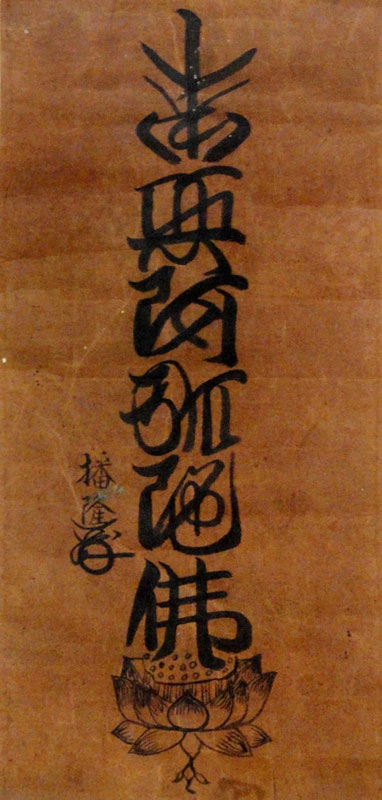 南無阿弥陀佛
播隆